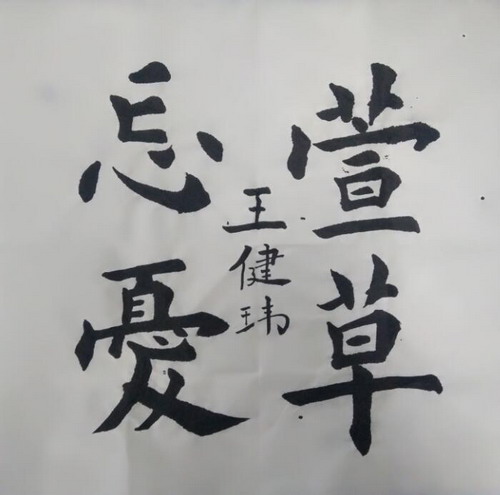 萱草
忘憂
王健玮